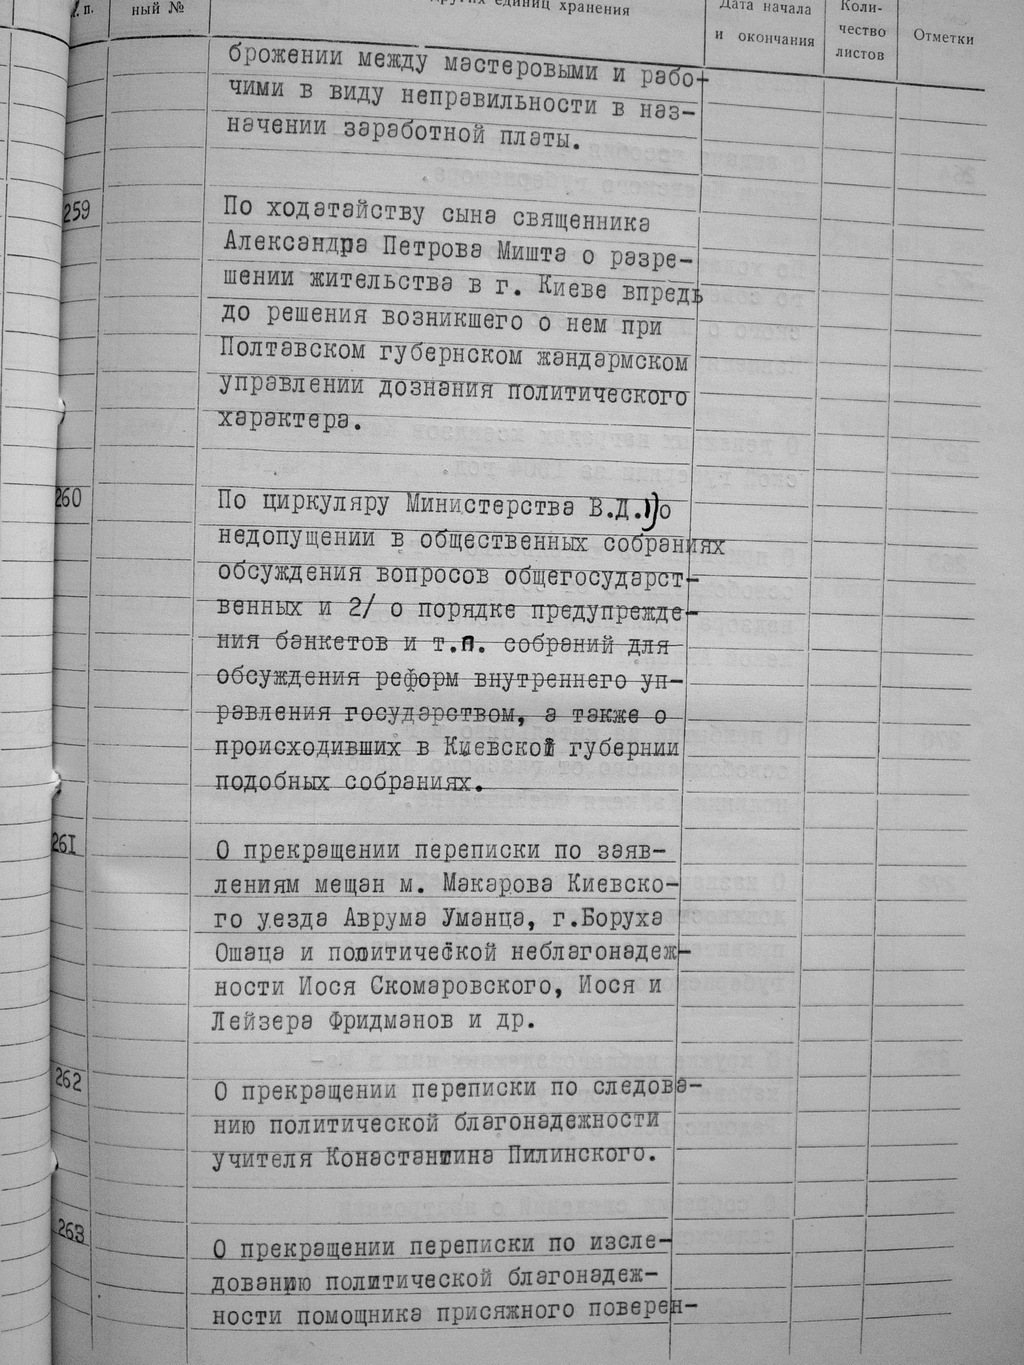 п.
ный №
других единиц хранения
Дата начала
и окончания
Коли-
чество
листов
Отметки
брожении между мастеровыми и рабо-
чими в виду неправильности в наз-
начении заработной платы.
259
По ходатайству сына священника
Александра Петрова Мишта о разре-
шении жительства в г. Киеве впредь
до решения возникшего о нем при
Полтавском губернском жандармском
управлении дознания политического
характера.
260
По циркуляру Министерства В.Д.1)о
недопущении в общественных собраниях
обсуждения вопросов общегосударст-
венных и 2/ о порядке предупрежде-
ния банкетов и т.п. собраний для
обсуждения реформ внутреннего уп-
равления государством, а также о
происходивших в Киевской губернии
подобных собраниях.
261
О прекращении переписки по заяв-
лениям мещан м. Макарова Киевско-
го уезда Аврума Уманца, г.Боруха
Ошаца и политической неблагонадеж-
ности Иося Скомаровского, Иося и
Лейзера Фридманов и др.
262
О прекращении переписки по следова-
нию политической благонадежности
учителя Конастантина Пилинского.
263
О прекращении переписки по изсле-
дованию политической благонадеж-
ности помощника присяжного поверен-